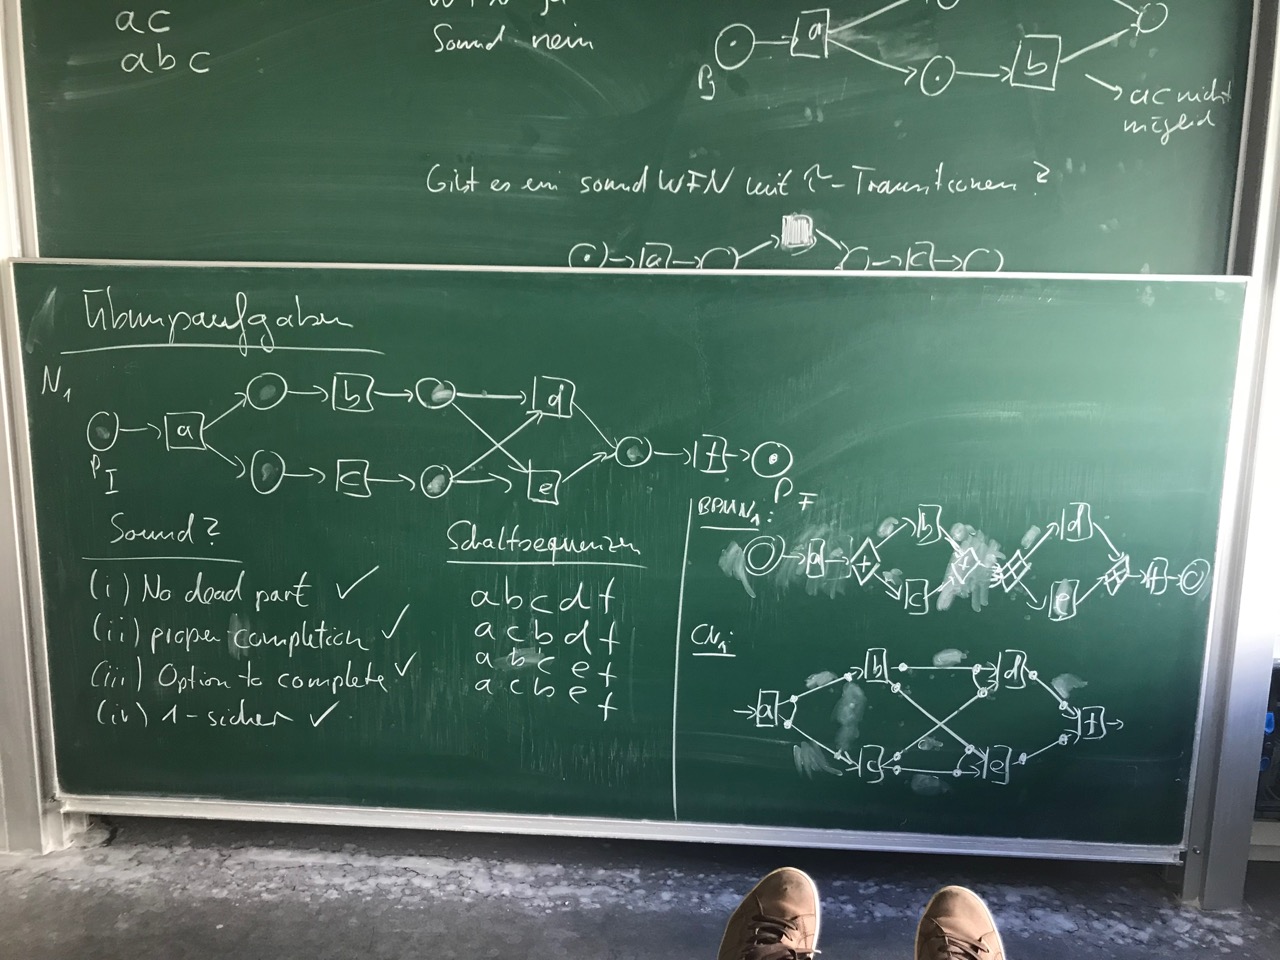 ac
abc
Sound nein
a
b
ac nicht
möglich
Gibt es ein sound WFN mit τ-Transitionen?
a
c
Übungsaufgaben
N1
PI
a
b
c
d
e
f
PF
Sound?
(i) No dead part ✓
(ii) proper completion ✓
(iii) Option to complete ✓
(iv) 1-sicher ✓
Schaltsequenzen
abcdf
acbdf
abcef
acbef
BPMN1:
a
+
b
c
+
d
e
f
CN1:
a
b
c
d
e
f